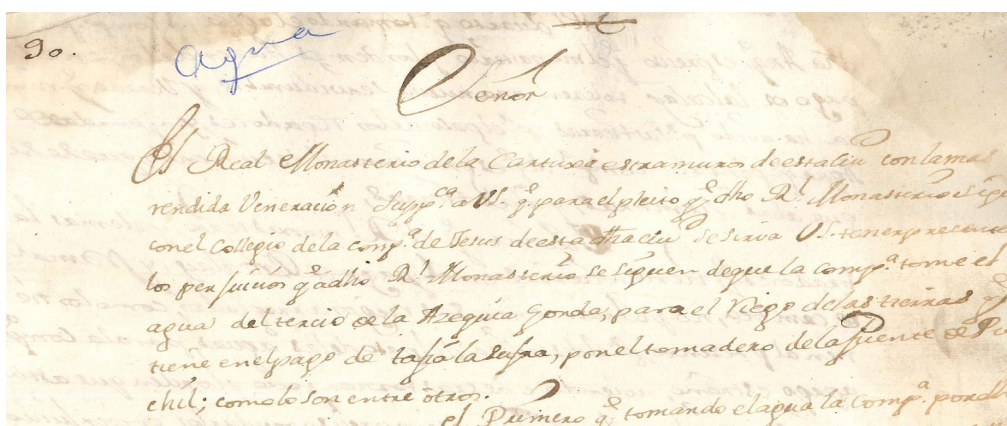 90.
agua
Señor
El Real Monasterio de la Cartuxa extramuros de esta ciu.ᵈ con la mas
rendida Veneracion Supp.ᶜᵃ a VS. q.ᵉ para el pleito q.ᵉ dho R.ˡ Monasterio sigue
con el Collegio de la comp.ᵃ de Jesus de esta dha ciu.ᵈ se sirva VS. tener presente
los perjuicios q.ᵉ a dho R.ˡ Monasterio se siguen de que la comp.ᵃ tome el
agua del tercio de la Azequia Gorda, para el Riego de las tierras q.ᵉ
tiene en el pago de la , por el tomadero de la Puente de
chil; como lo son entre otros.
el Primero q.ᵉ tomando el agua la comp.ᵃ por